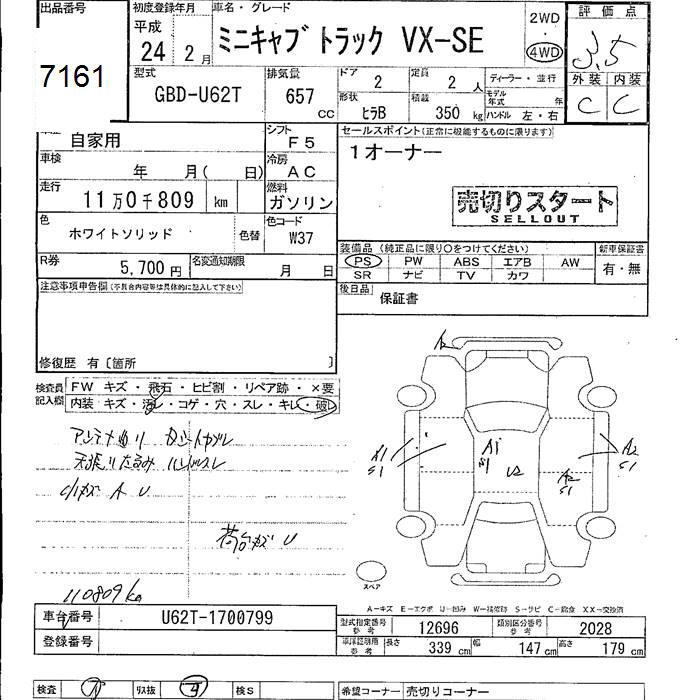 出品番号
7161
初度登録年月
平成
24 2月
車名・グレード
ミニキャブトラック VX-SE
2WD
・
4WD
評価点
3.5
外装 内装
C C
型式
GBD-U62T
排気量
657 cc
ドア
2
定員
2 人
形状
ヒラB
積載
350 kg
ディーラー・並行
モデル年式 年
ハンドル 左・右
自家用
シフト
F5
車検
年 月( 日)
冷房
AC
走行
11万0千809 km
燃料
ガソリン
色
ホワイトソリッド
色替
色コード
W37
R券
5,700円
名変通知期限
月 日
セールスポイント(正常に機能するものに限ります)
1オーナー
売切りスタート
SELLOUT
装備品(純正品に限り〇をつけてください)
PS PW ABS エアB AW
SR ナビ TV カワ
新車保証書
有・無
後日品
保証書
注意事項申告欄(不具合内容等は具体的に記入して下さい)
修復歴 有〔箇所 〕
検査員記入欄
FW キズ・飛石・ヒビ割・リペア跡・X要
内装 キズ・汚レ・コゲ・穴・スレ・キレ・破レ
天張りたるみ ハンドルスレ
A U
荷台キズ U
110809km
A2
A1
S1
A1
S1
U2
A2
S1
A2
S1
スペア
A-キズ E-エクボ U-凹み W-補修跡 S-サビ C-腐食 XX-交換済
車台番号
U62T-1700799
登録番号
型式指定番号 参考
12696
類別区分番号 参考
2028
車検証記載用 参考
長さ 339 cm 幅 147 cm 高さ 179 cm
検査
リス抜
検S
希望コーナー 売切りコーナー